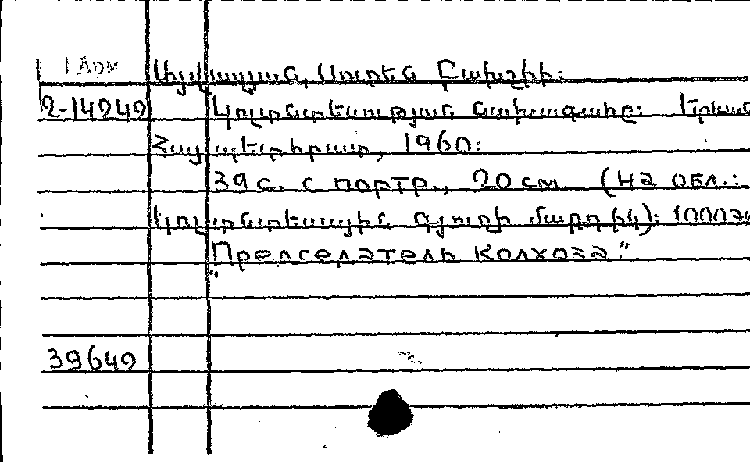 1 Арм
Սուրեն Բախշիի:
2-14249 Կոլտնտեսության նախագահը: Երևան
Հայպետհրատ, 1960:
39 с. с портр., 20 см (На обл.:
Կոլտնտեսային գյուղի մարդիկ): 1000
"Председатель колхоза."
39649